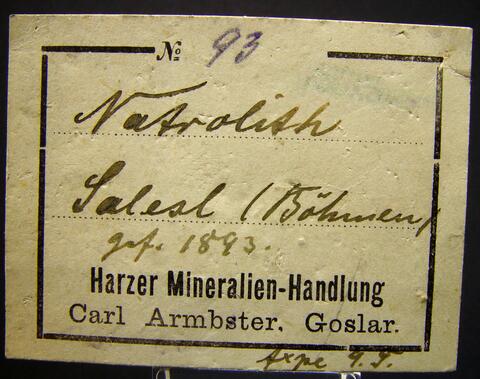 № 93
Natrolith
Salesl (Böhmen)
gef. 1893.
Harzer Mineralien-Handlung
Carl Armbster, Goslar.